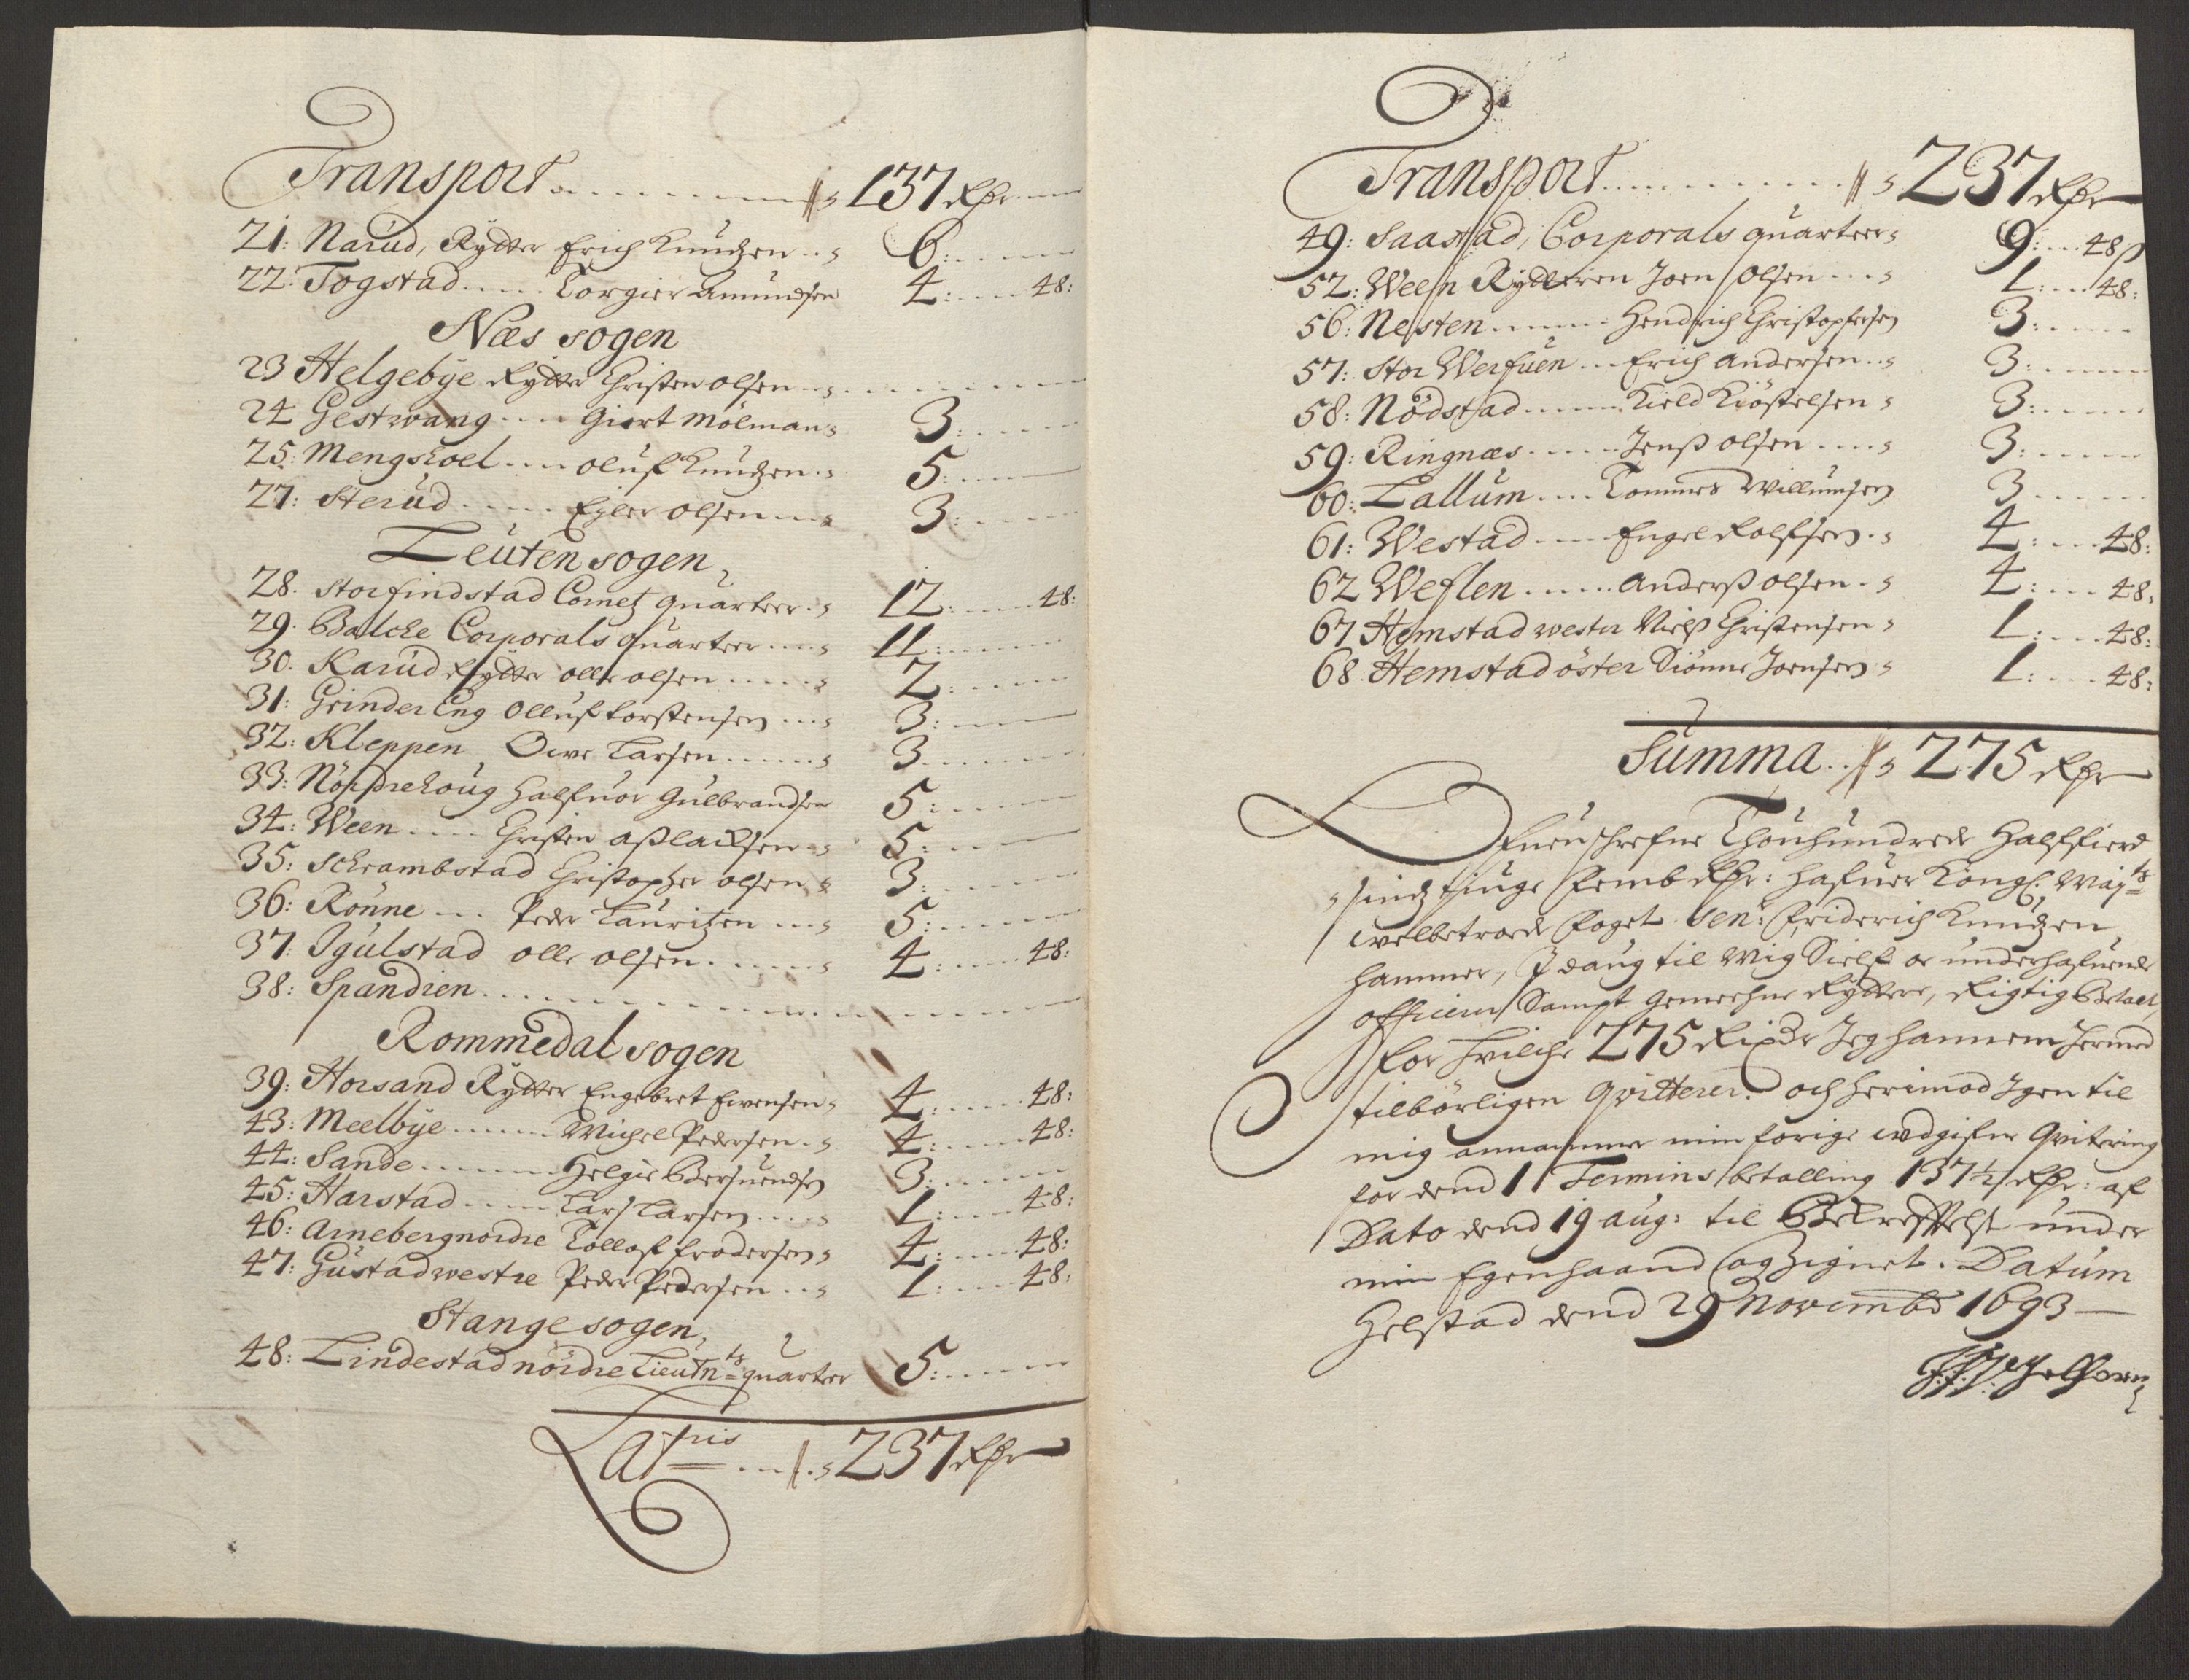 Transport . . . . . . . . 137 Rdr
21: Narud, Rytter Erich Knudzen . . 6: . . . .
22: Togstad . . . . Torgier Amundsen 4: . . . 48:
Næs sogen
23 Helgebÿe Rytter Christen olsen . . . . . . .
24 Gestwang . . . Giert Mölman 3: . . . .
25: Mengshoel . . . oluf Knudzen 5: . . . .
27: Sterud . . . . Eyler olsen 3: . . . .
Leuten sogen
28. Storfindstad Cornetz quarteer 12: . . . 48:
29. Balche Corporals quarteer 11: . . . .
30. Karud Rytter olle olsen . . . . 2: . . . .
31: Grinder Eng olluf torstensen . . . 3: . . . .
32: Kleppen Owe Larsen . . . . 3 . . . .
33: Nordrehoug Halfuor Gulbrandsen 5: . . . .
34: Ween . . . . Christen aslacksen 5: . . . .
35: Schrambstad Christopher olsen 3: . . . .
36: Rönne . . . Peder Lauritzen . . . 5: . . . .
37: Igulstad olle olsen . . . . 4: . . . 48:
38: Spandien . . . . . . . .
Rommedal sogen
39: Horsand Rytter Engebret Evensen 4: . . . 48:
43: Meelbÿe . . . . Michel Pedersen 4: . . . 48:
44: Sande . . . . Helgie Bersuendsen 3: . . . .
45: Harstad . . . . Lars Larsen . . . 1: . . . 48:
46: Arnebergnordre Tollof Frodersen 4: . . . 48:
47: Gustadwestre Peder Pedersen . . 1: . . . 48:
Stange sogen
48: Lindestad nordre Lieutn:ts quarteer 5: . . . .
Lat:ris . . . 237 Rdr
Transport . . . . . . . . 237 Rdr
49: Saastad, Corporals quarteer 9: . . . 48 ß
52: Ween Rytteren Joen olsen . . . 1: . . . 48:
56: Nesten . . . . Hendrich Christophersen 3: . . . .
57: Stor Werfuen . . . Erich Andersen . . 3: . . . .
58: Nödstad . . . . Kield Kiöstelsen 3: . . . .
59: Ringnæs . . . . Jenß olsen . . . . 3: . . . .
60: Lallum . . . . Tommes Willumsen 3 . . . .
61: Westad . . . . Engel Rolfsen . . 4: . . . 48:
62 Weflen . . . . Anderß olsen . . 4: . . . 48:
67 Hemstad wester Nielß Christensen 1: . . . 48:
68. Hemstad öster Siönne Joensen 1: . . . 48:
Summa . . . 275 Rdr
Ofuenschrefne Thouhundrede Halffierd
sindztiuge femb Rdr: hafuer Kongl. May:ts
welbetroede foget Sen: Friderich Knudzen
hammer, I daug til mig Sielf oc underhafuende
officerer Sampt gemeehne Ryttere, Rigtig Betalt,
for hvilche 275 Rixdr Jeg hannem hermed
tilbörligen Qvitterer. och herimod Igen til
mig annammer min forige udgifne Qvitering
for dend 1 Termins betalling 137½ Rdr: af
Dato dend 19 aug: til Bekreftelse under
min Egenhaand og Zignet. Datum
Helstad dend 29 Novembr 1693